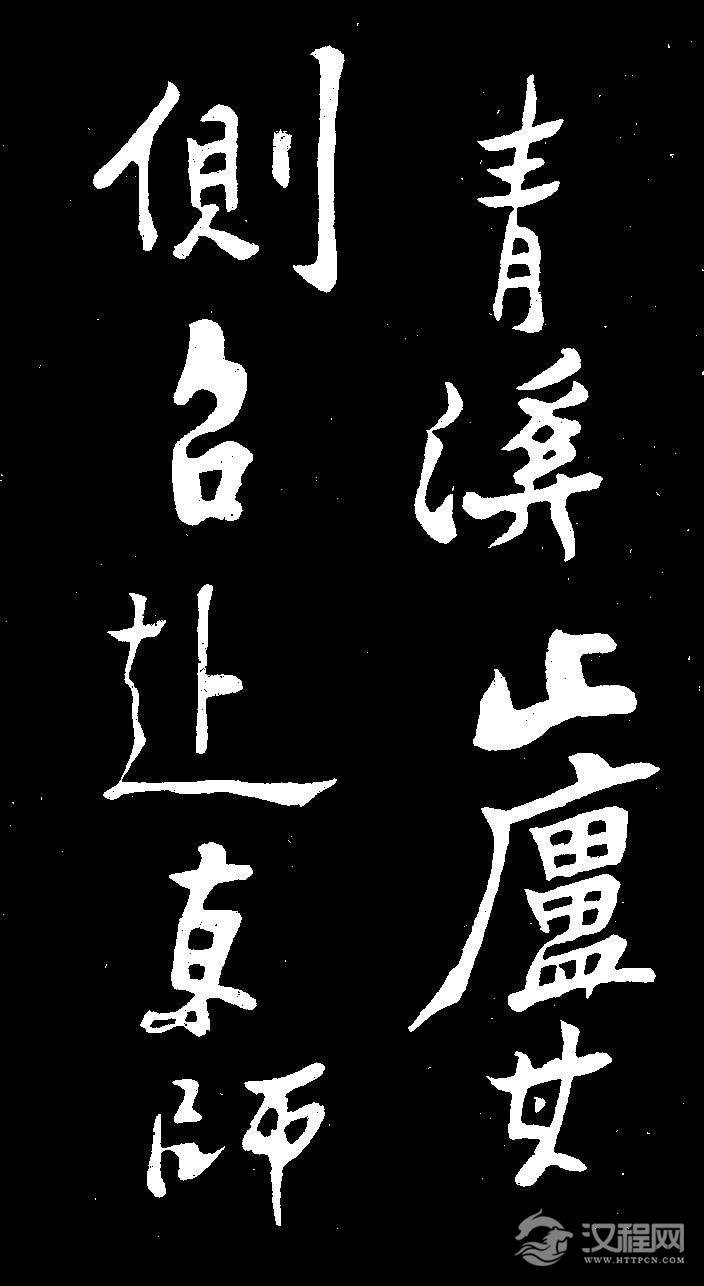 青溪止廬其
側召赴京師
汉程网
WWW.HTTPCN.COM